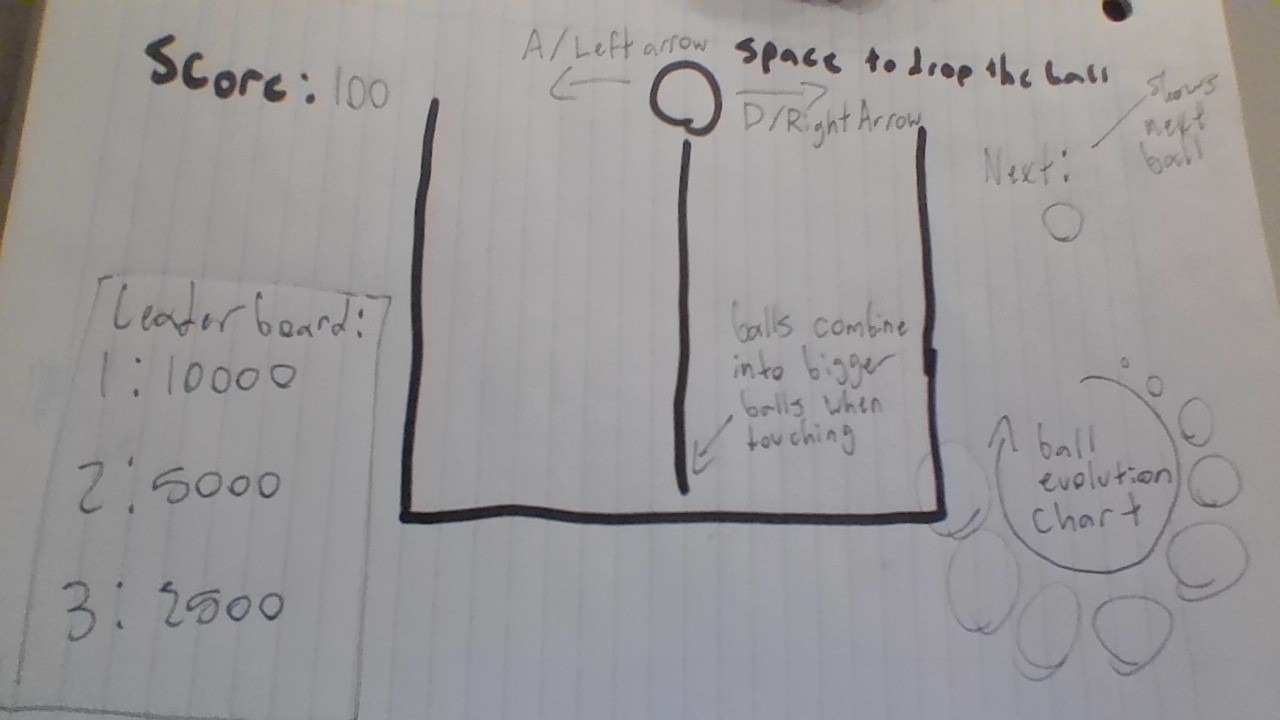 Score: 100
A/Left arrow
space to drop the ball
D/Right Arrow
shows
next
ball
Next:
Leaderboard:
1: 10000
2: 5000
3: 2500
balls combine
into bigger
balls when
touching
ball
evolution
chart